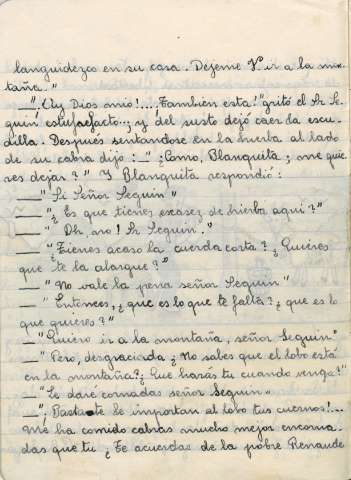 languidezco en su casa. Dejeme V. ir a la mon-
taña."
__"¡Ay Dios mio!... ¡Tambien esta!" gritó el Sr Se-
guin estupefacto..; y del susto dejó caer la escu-
dilla. Despues sentandose en la hierba al lado
de su cabra dijo: __" ¿Como, Blanquita; me quie-
res dejar?" Y Blanquita respondió:
__" Si Señor Seguin"
__" ¿Es que tienes escasez de hierba aqui?"
__" Oh, no! Sr Seguin."
__"¿Tienes acaso la cuerda corta? ¿Quieres
que te la alargue?"
__" No vale la pena señor Seguin"
__" Entonces, ¿que es lo que te falta? ¿que es lo
que quieres?"
__"Quiero ir a la montaña, señor Seguin"
__" Pero, desgraciada ¿No sabes que el lobo está
en la montaña? ¿Que harás tu cuando venga?"
__"Le daré cornadas señor Seguin"
__"¡Bastante le importan al lobo tus cuernos!...
Me ha comido cabras mucho mejor encorna-
das que tu ¿Te acuerdas de la pobre Renaude